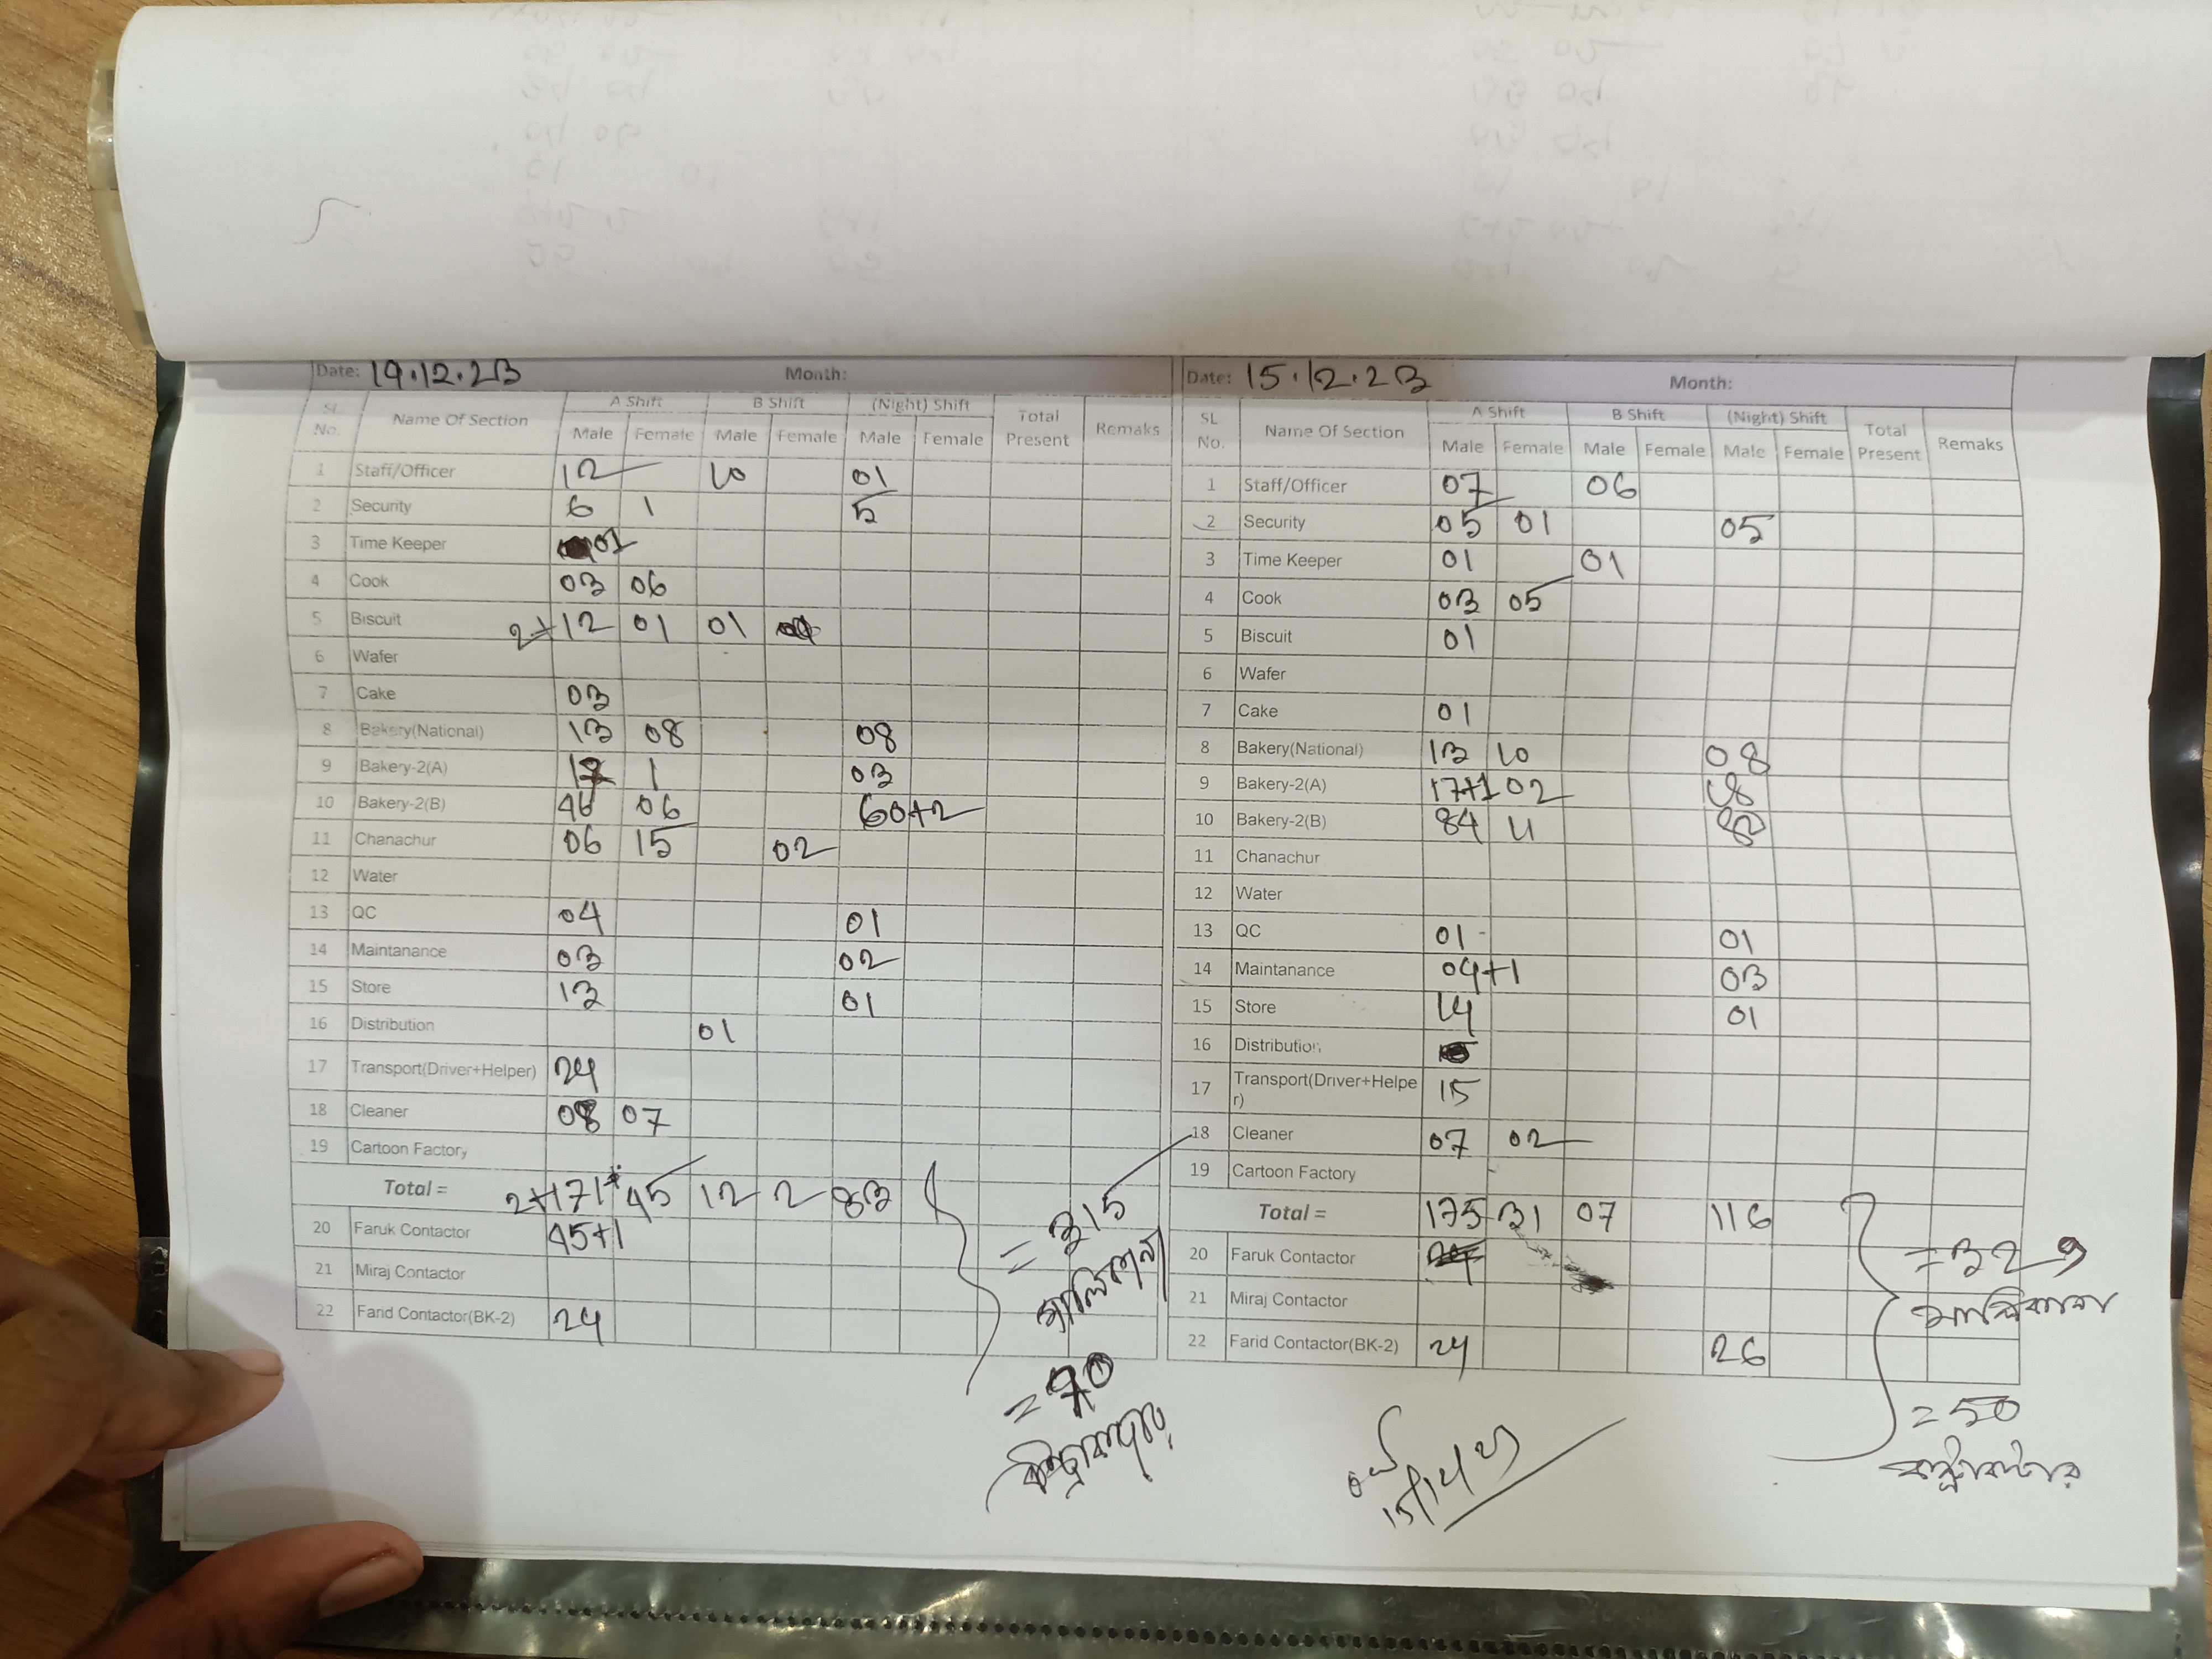 Date: 14.12.23 Month:
SL No. Name Of Section A Shift B Shift (Night) Shift Total Present Remaks
Male Female Male Female Male Female
1 Staff/Officer 12 10 01
2 Security 6 1 5
3 Time Keeper 01
4 Cook 03 06
5 Biscuit 2+12 01 01
6 Wafer
7 Cake 03
8 Bakery(National) 13 08 08
9 Bakery-2(A) 1 03
10 Bakery-2(B) 46 06 60+2
11 Chanachur 06 15 02
12 Water
13 QC 04 01
14 Maintanance 03 02
15 Store 13 01
16 Distribution 01
17 Transport(Driver+Helper) 24
18 Cleaner 08 07
19 Cartoon Factory
Total = 2+171+ 45 12 2 83
20 Faruk Contactor 45+1
21 Miraj Contactor
22 Farid Contactor(BK-2) 24
= 315
= 70
Date: 15.12.23 Month:
SL No. Name Of Section A Shift B Shift (Night) Shift Total Present Remaks
Male Female Male Female Male Female
1 Staff/Officer 07 06
2 Security 05 01 05
3 Time Keeper 01 01
4 Cook 03 05
5 Biscuit 01
6 Wafer
7 Cake 01
8 Bakery(National) 13 10 08
9 Bakery-2(A) 17+1 02 18
10 Bakery-2(B) 84 11
11 Chanachur
12 Water
13 QC 01 01
14 Maintanance 04+1 03
15 Store 14 01
16 Distribution
17 Transport(Driver+Helpe
r) 15
18 Cleaner 07 02
19 Cartoon Factory
Total = 175 31 07 116
20 Faruk Contactor
21 Miraj Contactor
22 Farid Contactor(BK-2) 24 26
= 329
= 50
কন্ট্রাকটার
15/12/23